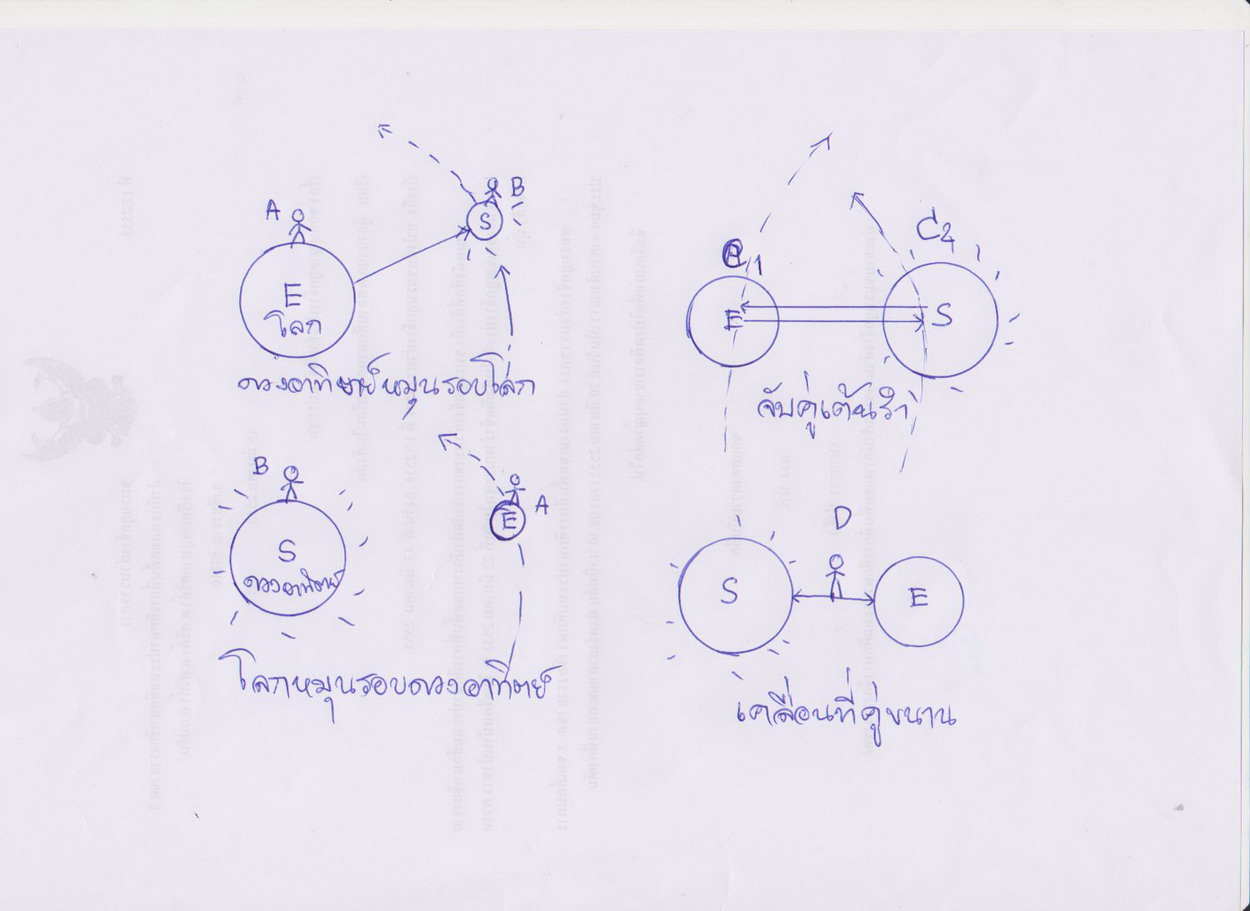 A
B
S
E
โลก
ดวงอาทิตย์หมุนรอบโลก
1
C2
E
S
จับคู่เต้นรำ
B
S
ดวงอาทิตย์
E
A
โลกหมุนรอบดวงอาทิตย์
D
S
E
เคลื่อนที่คู่ขนาน